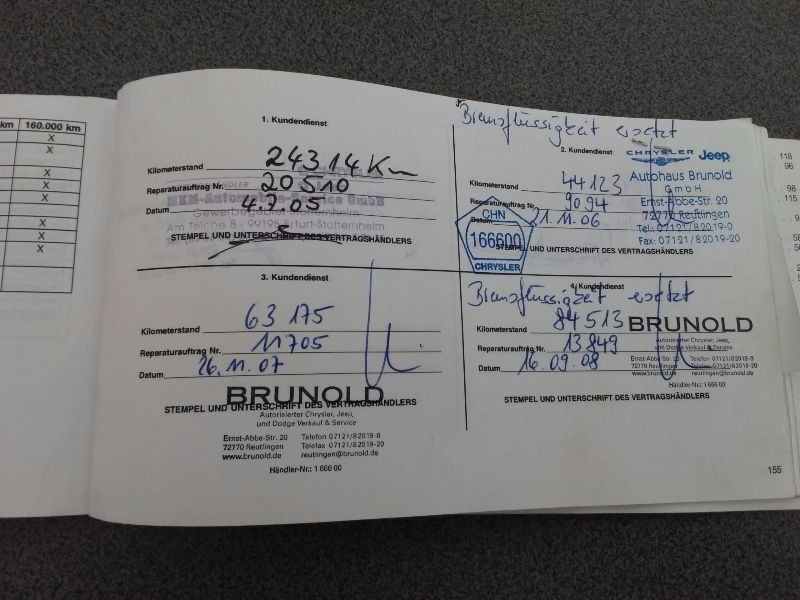 km 160.000 km
X
X
X
X
X
X
X
X
1. Kundendienst
Kilometerstand 24314 Km
Reparaturauftrag Nr. 20510
Datum 4.7.05
MKM-Automobile-Service GmbH
Gewerbegebiet Stotternheim
Am Teiche 8 · 99195 Erfurt-Stotternheim
STEMPEL UND UNTERSCHRIFT DES VERTRAGSHÄNDLERS
Bremsflüssigkeit ersetzt
2. Kundendienst
CHRYSLER Jeep
Kilometerstand 44123
Reparaturauftrag Nr. 9094
Datum 21.11.06
Autohaus Brunold
GmbH
Ernst-Abbe-Str. 20
72770 Reutlingen
Tel: 07121/82019-0
Fax: 07121/82019-20
CHN
166600
CHRYSLER
STEMPEL UND UNTERSCHRIFT DES VERTRAGSHÄNDLERS
3. Kundendienst
Kilometerstand 63175
Reparaturauftrag Nr. 11705
Datum 26.11.07
BRUNOLD
STEMPEL UND UNTERSCHRIFT DES VERTRAGSHÄNDLERS
Autorisierter Chrysler, Jeep,
und Dodge Verkauf & Service
Ernst-Abbe-Str. 20 Telefon 07121/82019-0
72770 Reutlingen Telefax 07121/82019-20
www.brunold.de reutlingen@brunold.de
Händler-Nr.: 1 666 00
Bremsflüssigkeit ersetzt
4. Kundendienst
Kilometerstand 84513
Reparaturauftrag Nr. 13849
Datum 16.09.08
BRUNOLD
Autorisierter Chrysler, Jeep,
und Dodge Verkauf & Service
Ernst-Abbe-Str. 20 Telefon 07121/82019-0
72770 Reutlingen Telefax 07121/82019-20
www.brunold.de reutlingen@brunold.de
Händler-Nr.: 1 666 00
STEMPEL UND UNTERSCHRIFT DES VERTRAGSHÄNDLERS
155
118
96
98
115